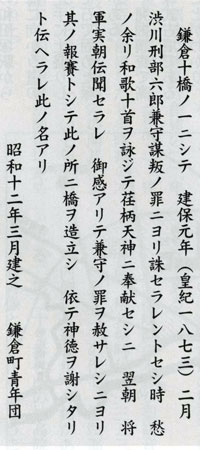 鎌倉十橋ノ一ニシテ　建保元年（皇紀一八七三）二月
渋川刑部六郎兼守謀叛ノ罪ニヨリ誅セラレントセシ時　愁
ノ余リ和歌十首ヲ詠ジテ荏柄天神ニ奉献セシニ　翌朝　将
軍実朝伝聞セラレ　御感アリテ兼守ノ罪ヲ赦サレシニヨリ
其ノ報賽トシテ此ノ所ニ橋ヲ造立シ　依テ神徳ヲ謝シタリ
ト伝ヘラレ此ノ名アリ
昭和十二年三月建之　鎌倉町青年団